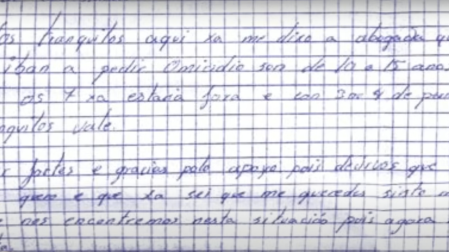 os tranquilos aqui xa me dixo a abogada q
iban a pedir Omicidio son de 10 a 15 ano
os 7 xa estaria fora e son 3 or 4 de
nquilos vale.
fortes e gracias polo apoyo pois deciivos que
quero e que xa sei que me queredes sinto
nos encontremos nesta situación pois agora